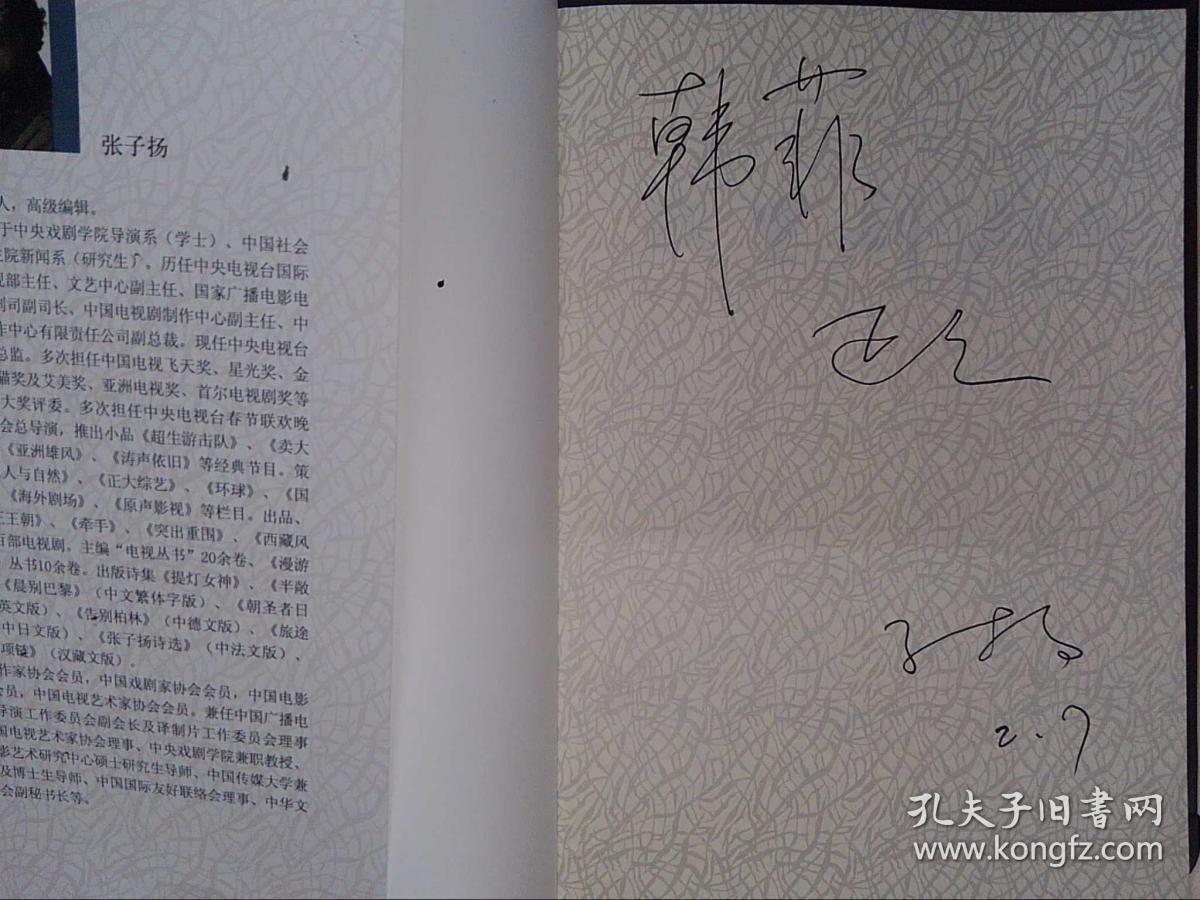 张子扬
人，高级编辑。
于中央戏剧学院导演系（学士）、中国社会
院新闻系（研究生）。历任中央电视台国际
视部主任、文艺中心副主任、国家广播电影电
制司副司长、中国电视剧制作中心副主任、中
作中心有限责任公司副总裁。现任中央电视台
总监。多次担任中国电视飞天奖、星光奖、金
猫奖及艾美奖、亚洲电视奖、首尔电视剧奖等
大奖评委。多次担任中央电视台春节联欢晚
会总导演，推出小品《超生游击队》、《卖大
《亚洲雄风》、《涛声依旧》等经典节目。策
人与自然》、《正大综艺》、《环球》、《国
《海外剧场》、《原声影视》等栏目。出品、
王朝》、《牵手》、《突出重围》、《西藏风
百部电视剧。主编“电视丛书”20余卷、《漫游
丛书10余卷。出版诗集《提灯女神》、《半敞
《晨别巴黎》（中文繁体字版）、《朝圣者日
英文版）、《告别柏林》（中德文版）、《旅途
中日文版）、《张子扬诗选》（中法文版）、
项链》（汉藏文版）。
作家协会会员，中国戏剧家协会会员，中国电影
会员，中国电视艺术家协会会员。兼任中国广播电
导演工作委员会副会长及译制片工作委员会理事
国电视艺术家协会理事、中央戏剧学院兼职教授、
影艺术研究中心硕士研究生导师、中国传媒大学兼
及博士生导师、中国国际友好联络会理事、中华文
会副秘书长等。
韩菲
正之
子扬
2.7
孔夫子旧書网
www.kongfz.com